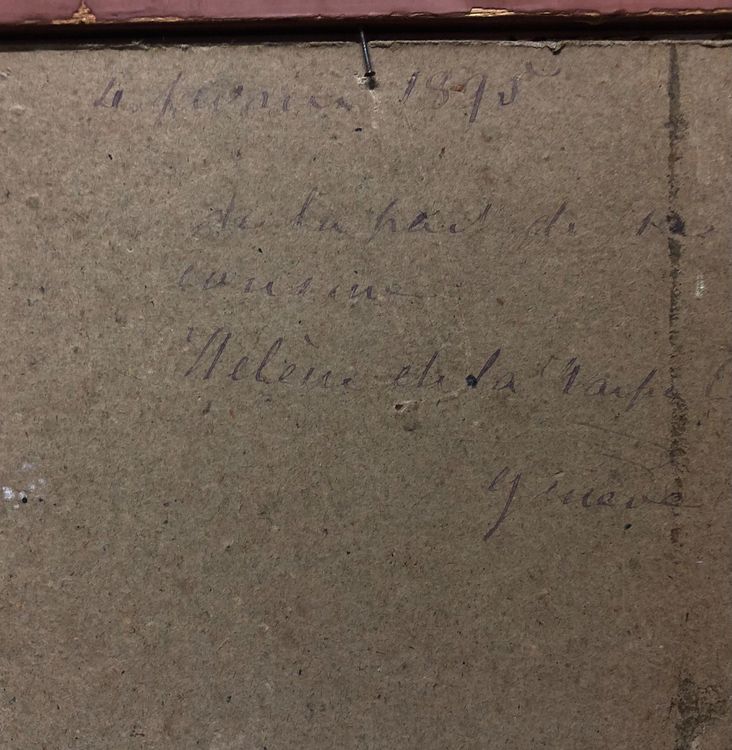 4 février 1895
de la part de sa
cousine
Hélène de la
Genève